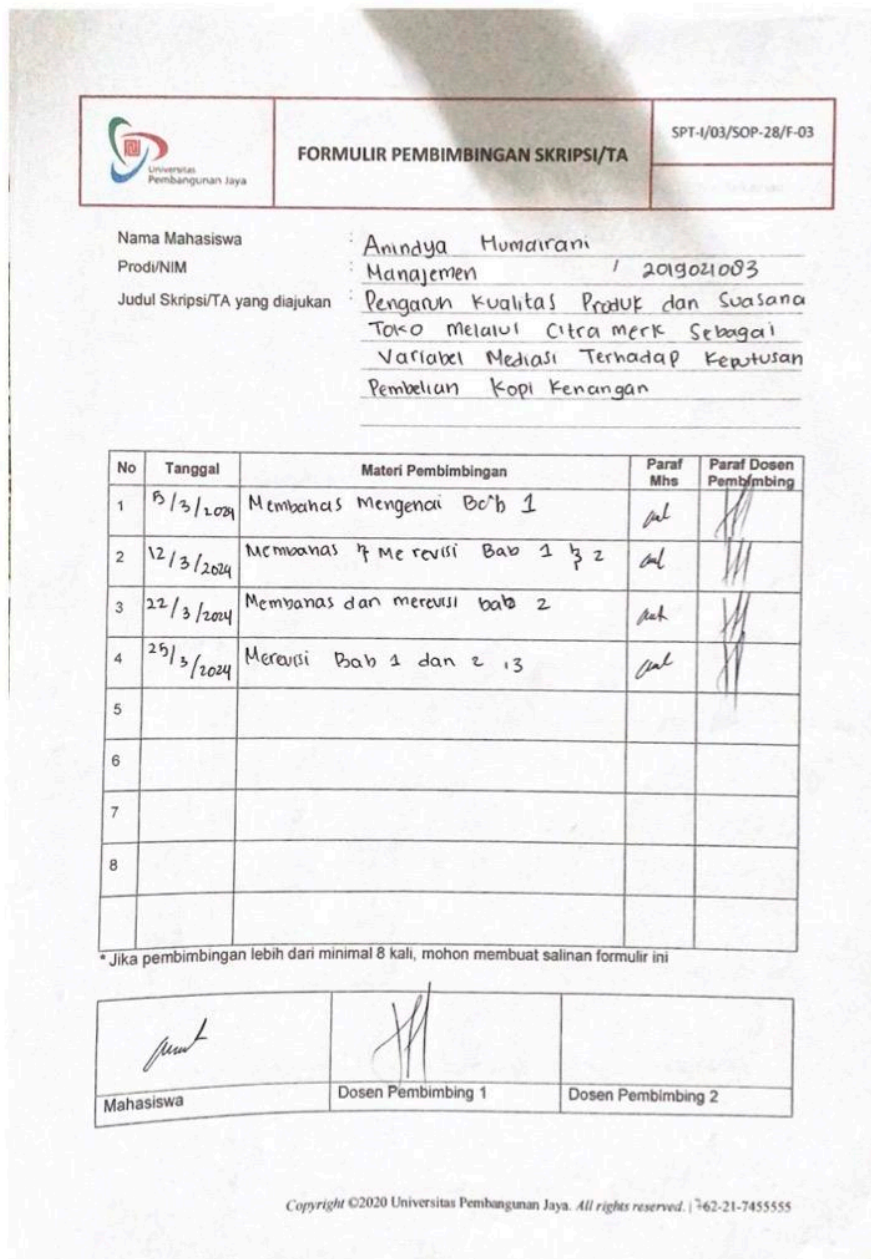 Universitas
Pembangunan Jaya
FORMULIR PEMBIMBINGAN SKRIPSI/TA
SPT-I/03/SOP-28/F-03
Nama Mahasiswa : Anindya Humairani
Prodi/NIM : Manajemen / 2019021083
Judul Skripsi/TA yang diajukan : Pengaruh Kualitas Produk dan Suasana
Toko melalui Citra merk Sebagai
Variabel Mediasi Terhadap Keputusan
Pembelian Kopi Kenangan
No Tanggal Materi Pembimbingan Paraf Mhs Paraf Dosen Pembimbing
1 5/3/2024 Membahas Mengenai Bab 1
2 12/3/2024 Membahas & Me revisi Bab 1 & 2
3 22/3/2024 Membahas dan merevisi bab 2
4 25/3/2024 Merevisi Bab 1 dan 2 ,3
5
6
7
8
* Jika pembimbingan lebih dari minimal 8 kali, mohon membuat salinan formulir ini
Mahasiswa Dosen Pembimbing 1 Dosen Pembimbing 2
Copyright ©2020 Universitas Pembangunan Jaya. All rights reserved. | +62-21-7455555